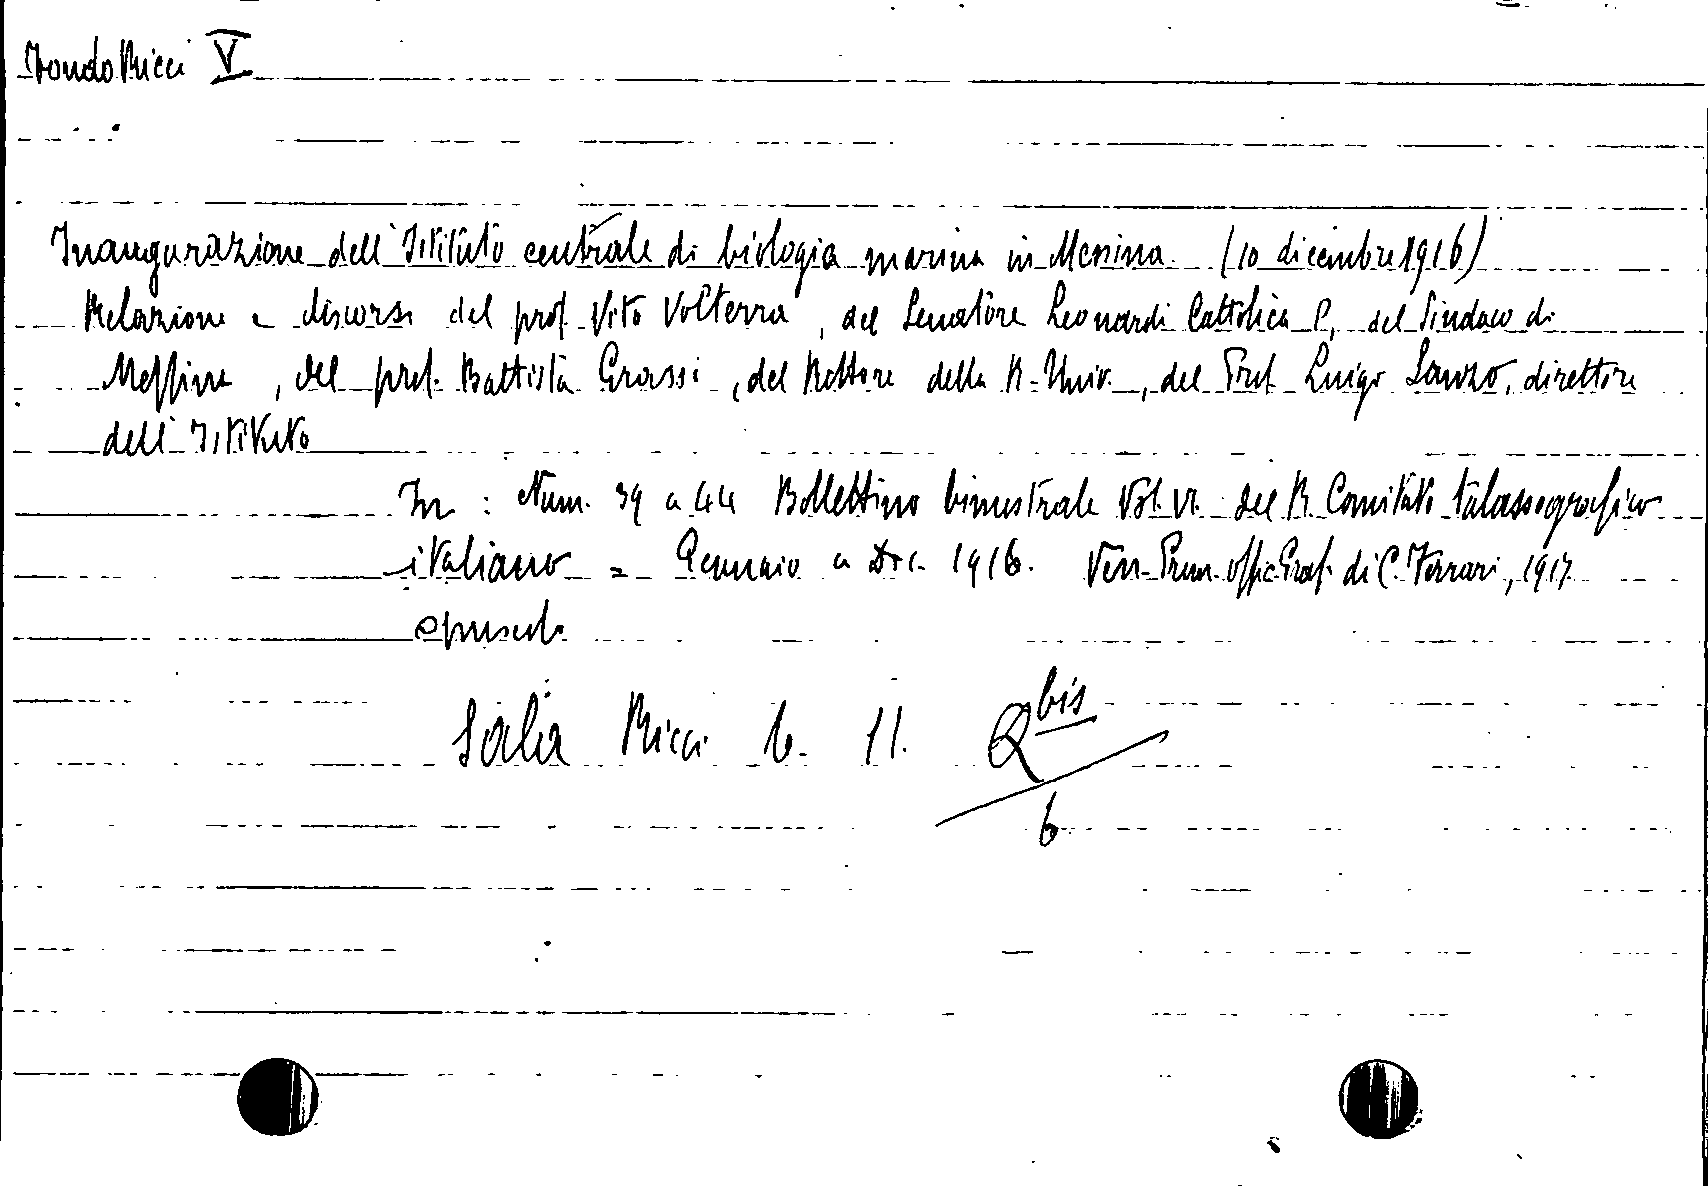 Fondo Ricci V
Inaugurazione dell'Istituto centrale di biologia marina in Messina. (10 dicembre 1916)
Relazione e discorsi del prof. Vito Volterra, del Senatore Leonardi Cattolica P., del Sindaco di
Messina, del prof. Battista Grassi, del Rettore della R. Univ., del Prof. Luigi Sanzo, direttore
dell'Istituto
In: Num. 39 a 44 Bollettino bimestrale Vol. VI. del R. Comitato talassografico
italiano = Gennaio a Dic. 1916. Ven. Prem. Offic. Graf. di C. Ferrari, 1917
opuscolo
Sala Ricci b. 11. Q bis
6